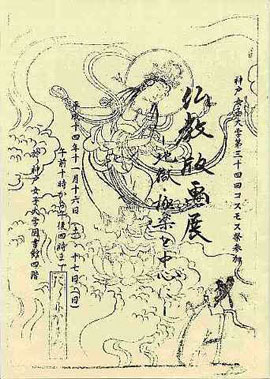 神戸女子大学第三十四回コスモス祭参加
仏教版画展
地獄・極楽を中心に
平成十四年十一月十六日(土)・十七日(日)
午前十時から午後四時まで
神戸女子大学図書館四階